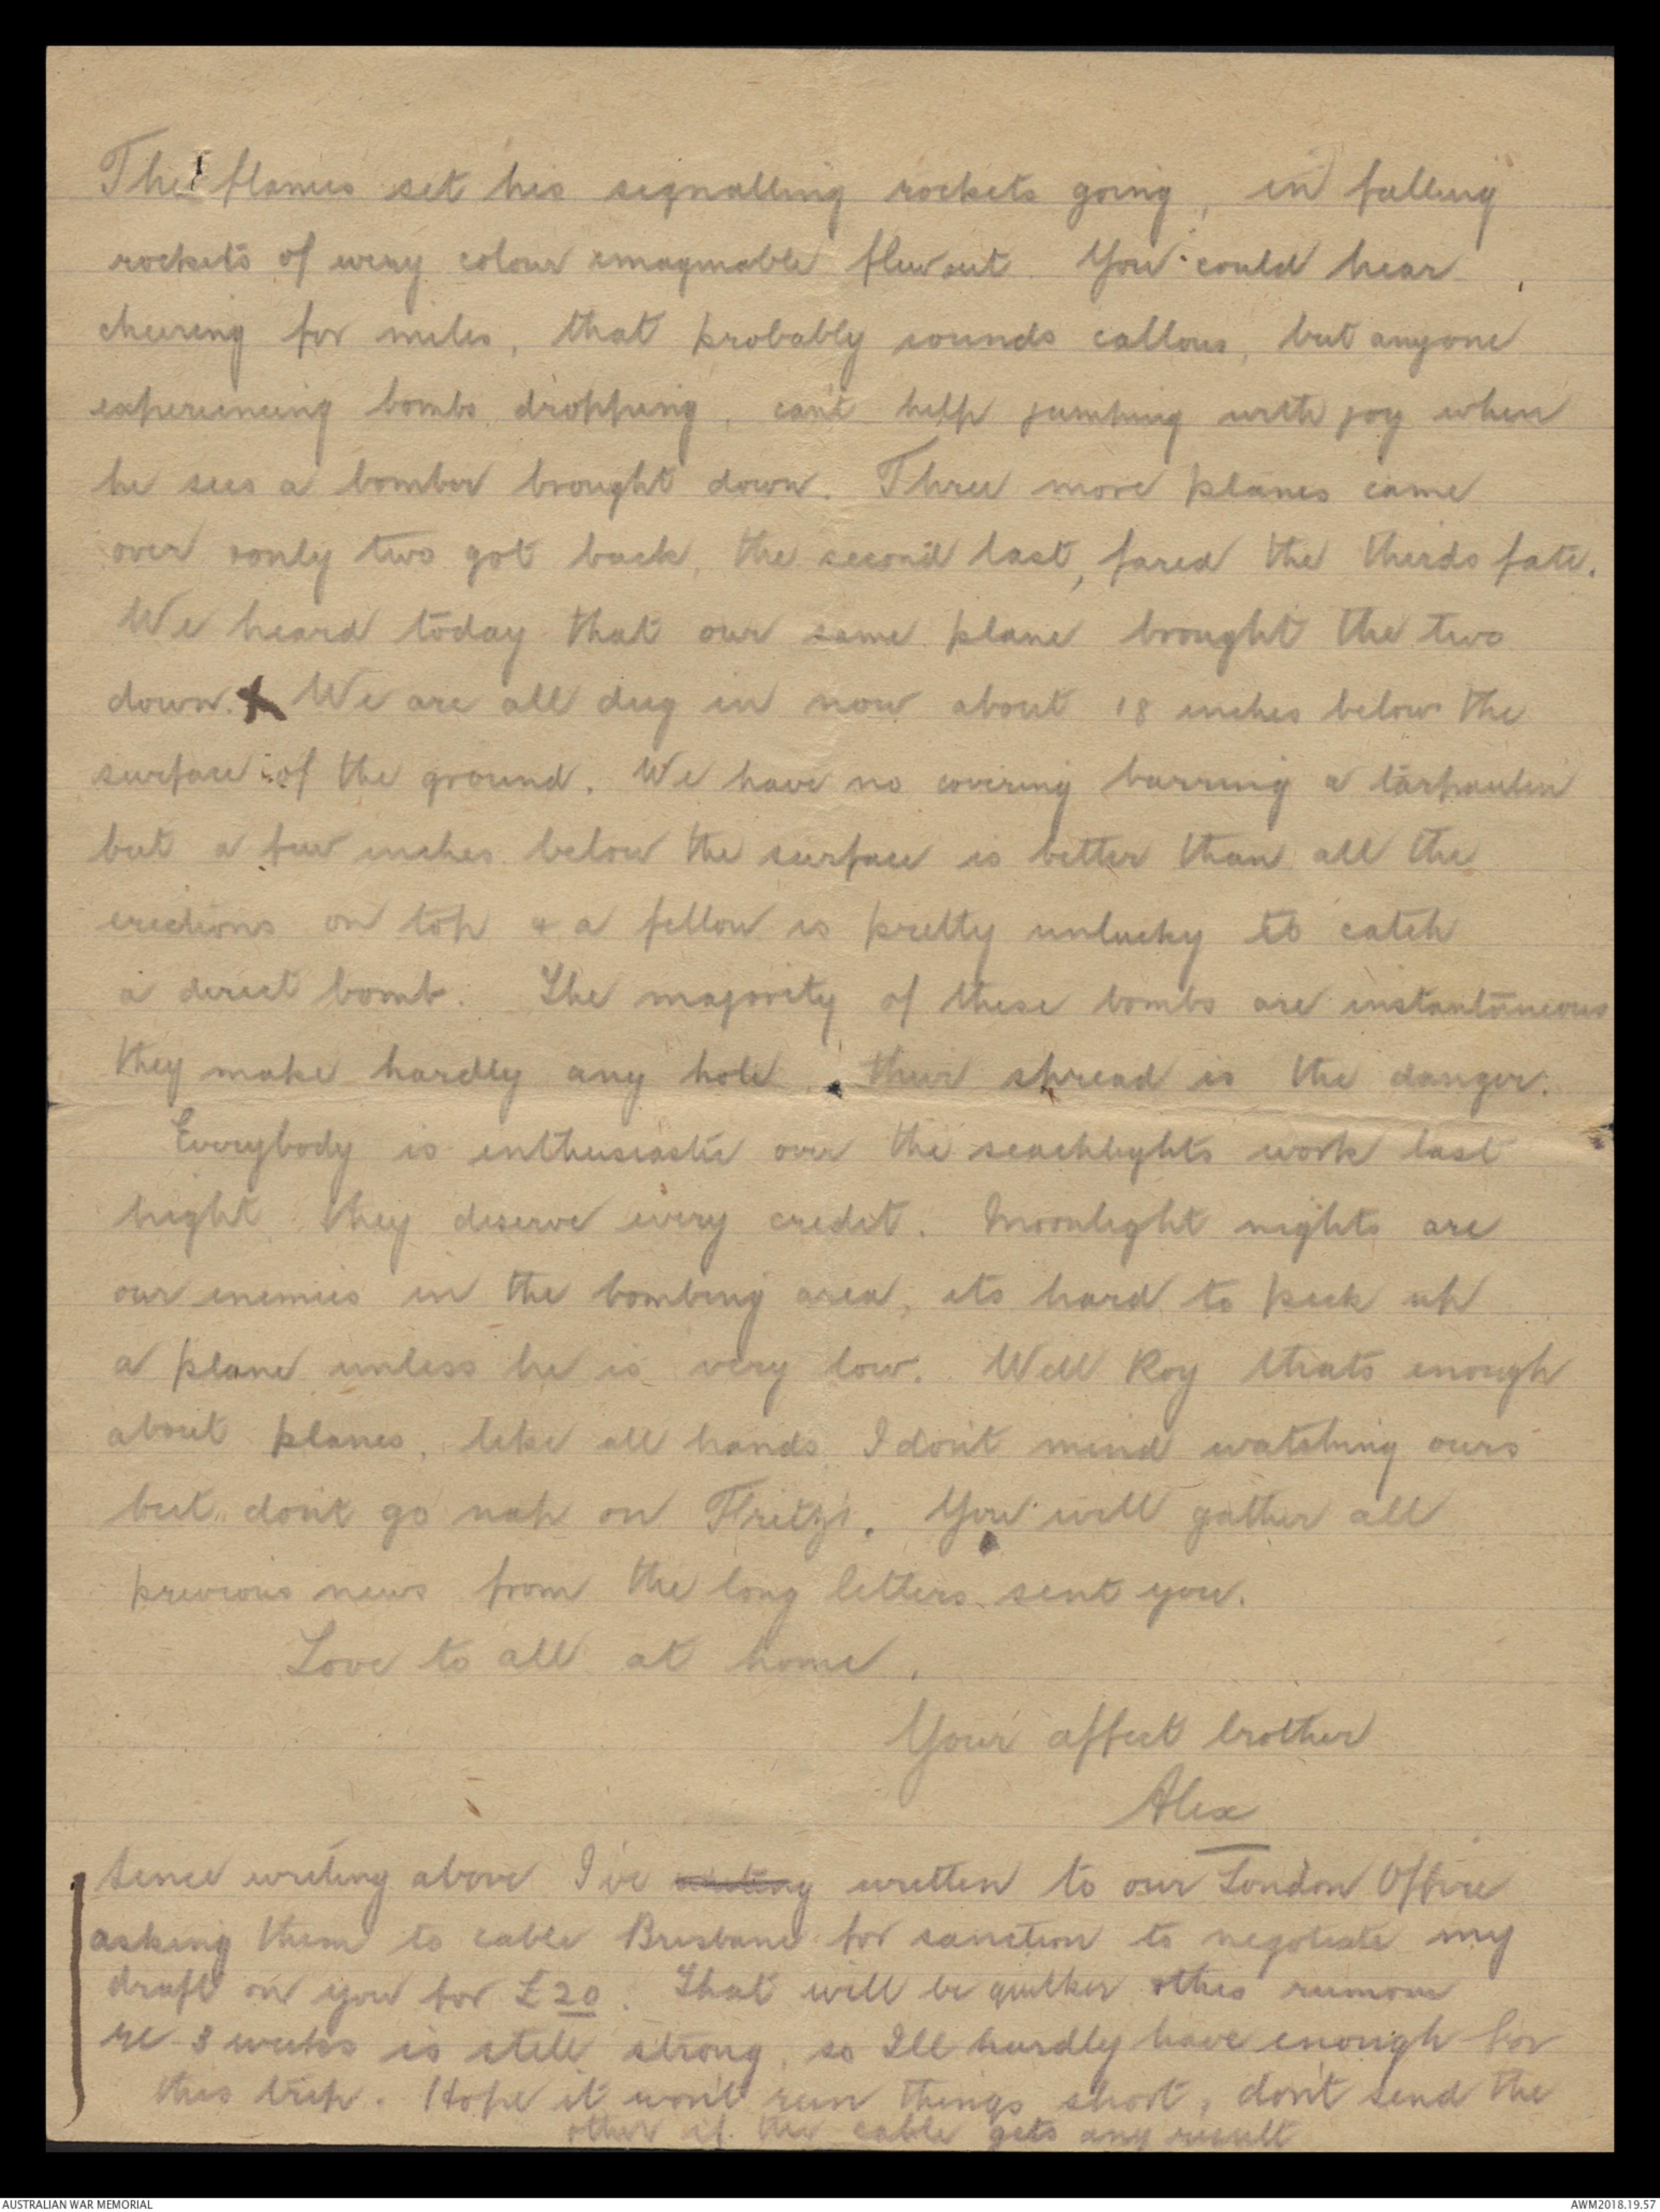 The flames set his signalling rockets going, in falling
rockets of every colour imaginable flew out. You could hear
cheering for miles, that probably sounds callous, but anyone
experiencing bombs dropping, can't help jumping with joy when
he sees a bomber brought down. Three more planes came
over & only two got back, the second last, fared the thirds fate.
We heard today that our same plane brought the two
down. We are all dug in now about 18 inches below the
surface of the ground. We have no covering barring a tarpaulin
but a few inches below the surface is better than all the
erections on top & a fellow is pretty unlucky to catch
a direct bomb. The majority of these bombs are instantaneous
they make hardly any hole, their spread is the danger.
Everybody is enthusiastic over the seachlights work last
night they deserve every credit. Moonlight nights are
our enemies in the bombing area, its hard to pick up
a plane unless he is very low. Well Roy thats enough
about planes, like all hands I don't mind watching ours
but don't go nap on Fritz's. You will gather all
previous news from the long letters sent you.
Love to all at home.
Your affect brother
Alex
Since writing above I've writing written to our London Office
asking them to cable Brisbane for sanction to negotiate my
draft on you for £20. That will be quicker & this rumour
re 3 weeks is still strong, so Ill hardly have enough for
this trip. Hope it won't run things short, don't send the
other if the cable gets any result
AUSTRALIAN WAR MEMORIAL
AWM2018.19.57